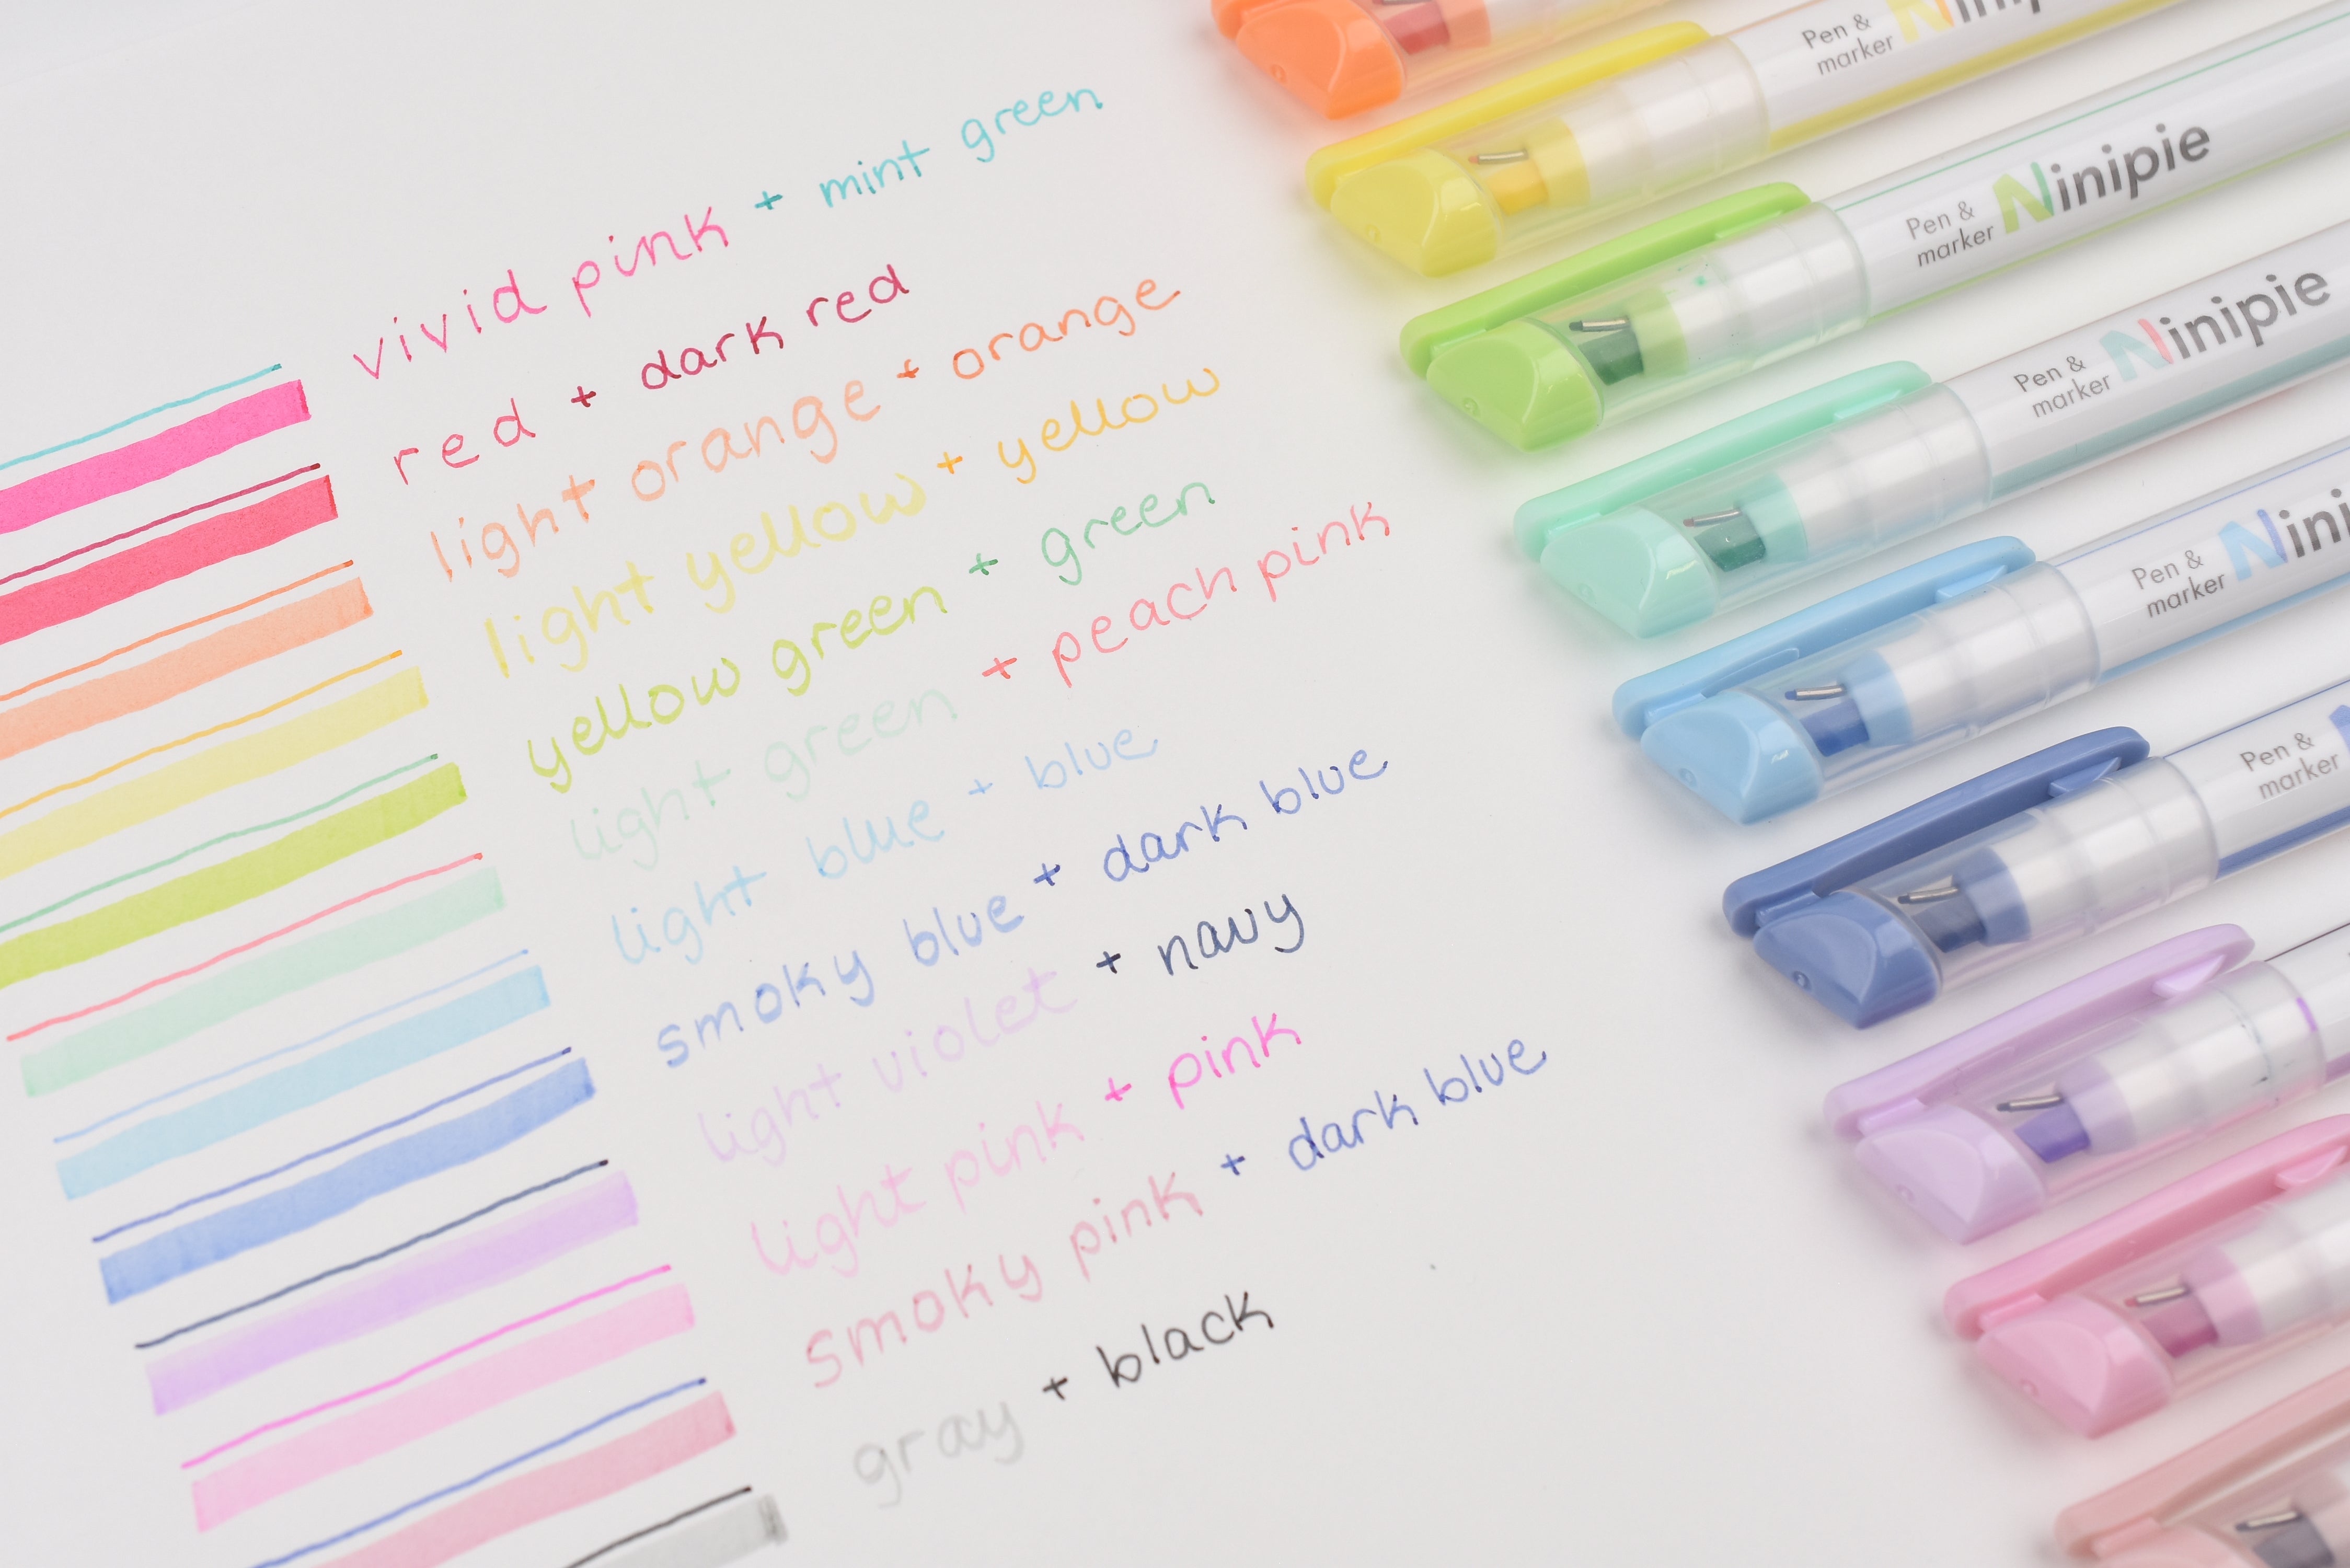 vivid pink + mint green
red + dark red
light orange + orange
light yellow + yellow
yellow green + green
light green + peach pink
light blue + blue
smoky blue + dark blue
light violet + navy
light pink + pink
smoky pink + dark blue
gray + black
Pen &
marker
Pen &
marker Ninipie
Pen &
marker Ninipie
Pen &
marker Nini
Pen &
marker